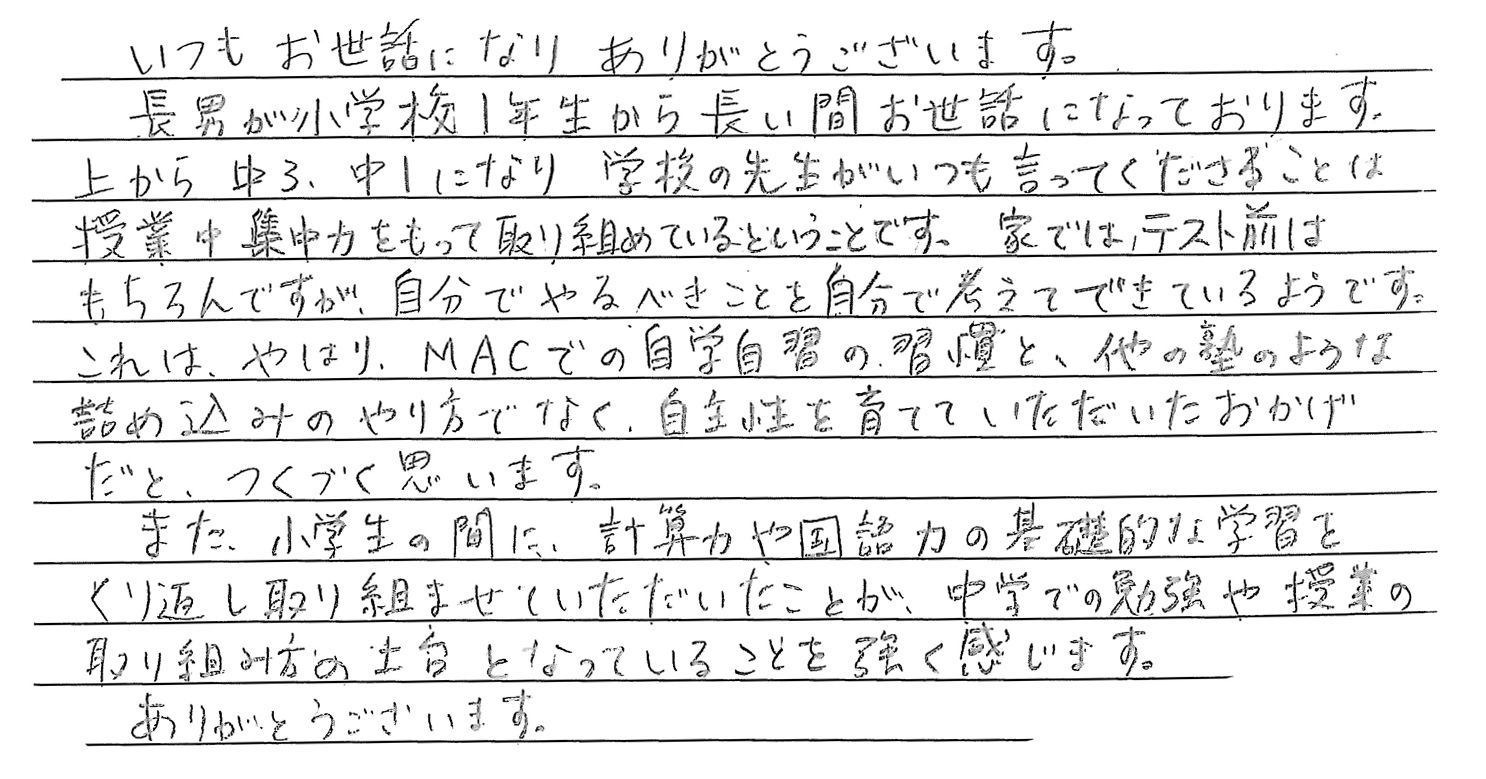 いつもお世話になりありがとうございます。
長男が小学校1年生から長い間お世話になっております。
上から中3、中1になり学校の先生がいつも言ってくださることは
授業中集中力をもって取り組めているということです。家では、テスト前は
もちろんですが、自分でやるべきことを自分で考えてできているようです。
これは、やはり、MACでの自学自習の習慣と、他の塾のような
詰め込みのやり方でなく、自主性を育てていただいたおかげ
だと、つくづく思います。
また、小学生の間に、計算力や国語力の基礎的な学習を
くり返し取り組ませていただいたことが、中学での勉強や授業の
取り組み方の土台となっていることを強く感じます。
ありがとうございます。